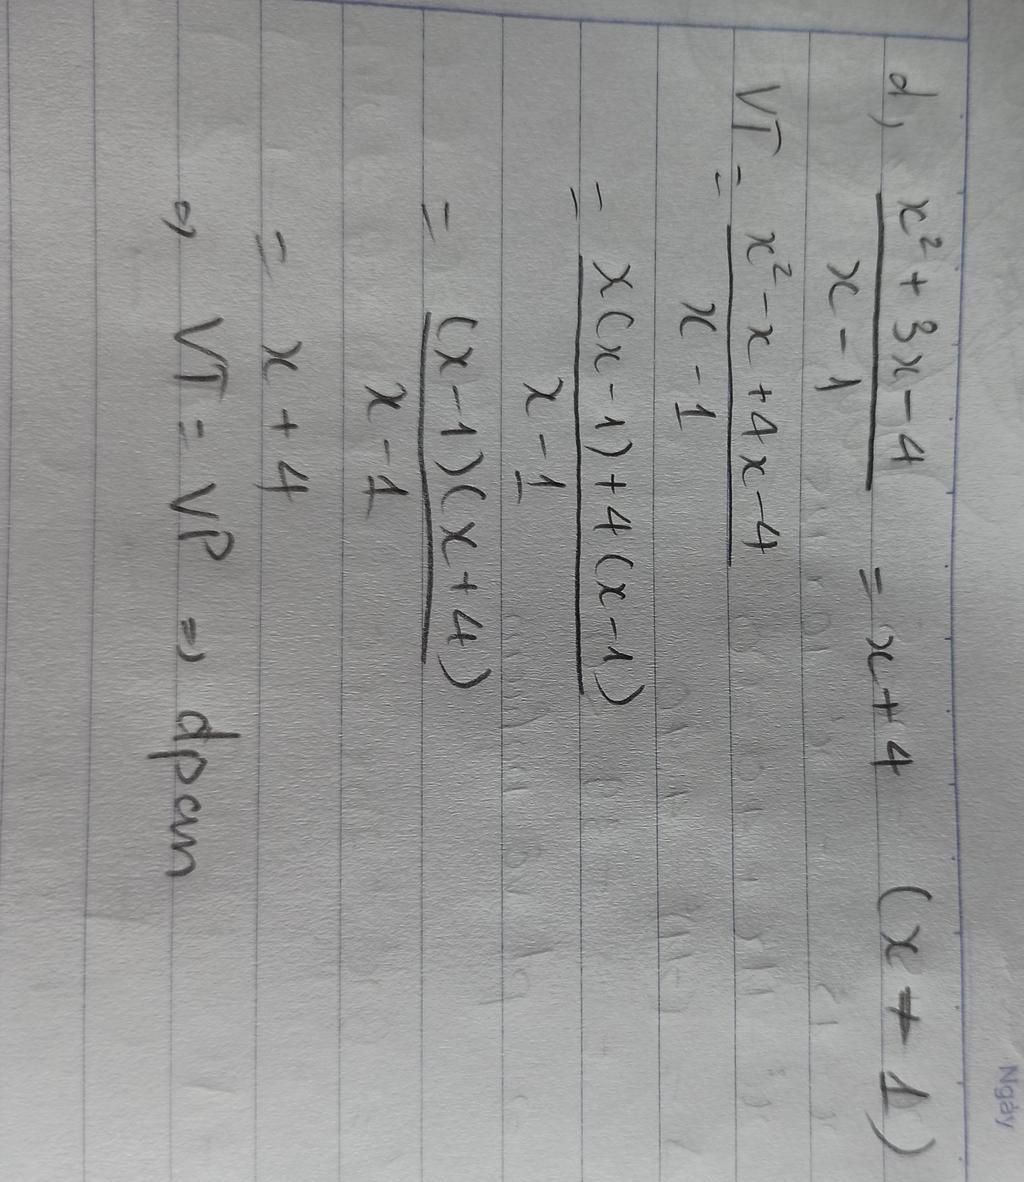 Ngày
d, \frac{x² + 3x - 4}{x - 1} = x + 4 (x ≠ 1)
VT = \frac{x² - x + 4x - 4}{x - 1}
= \frac{x(x - 1) + 4(x - 1)}{x - 1}
= \frac{(x - 1)(x + 4)}{x - 1}
= x + 4
=> VT = VP => dpcm